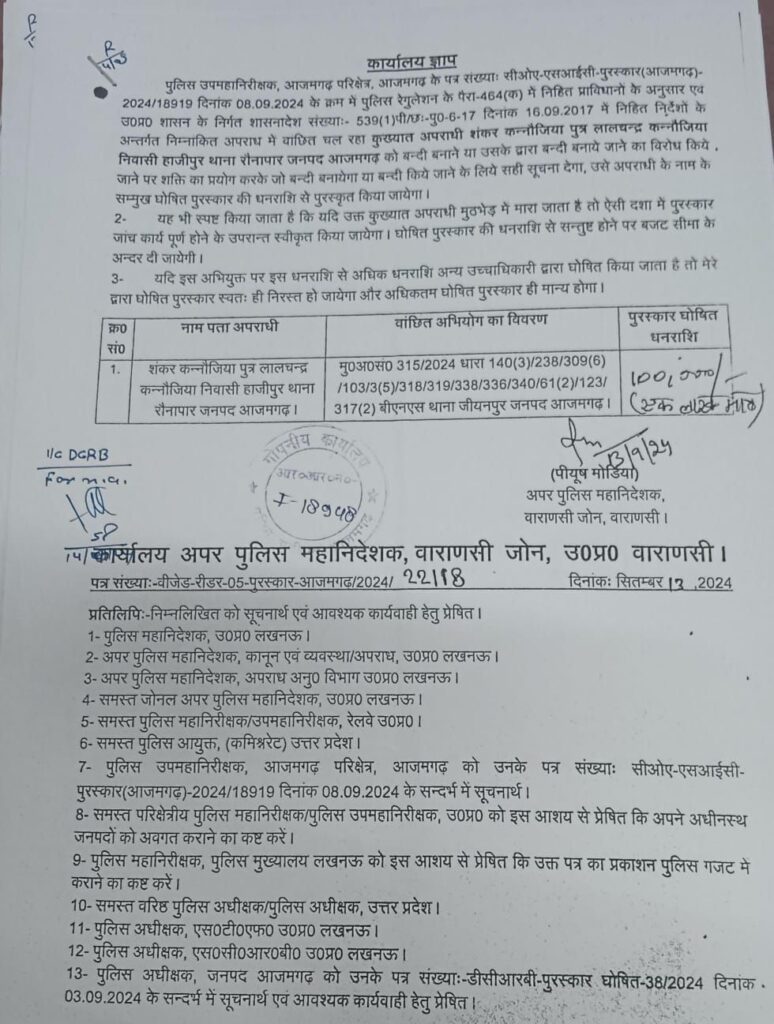 R
R
कार्यालय ज्ञाप
पुलिस उपमहानिरीक्षक, आजमगढ़ परिक्षेत्र, आजमगढ़ के पत्र संख्याः सीओए-एसआईसी-पुरस्कार(आजमगढ़)-
2024/18919 दिनांक 08.09.2024 के क्रम में पुलिस रेगुलेशन के पैरा-464(क) में निहित प्राविधानों के अनुसार एवं
उ०प्र० शासन के निर्गत शासनादेश संख्याः- 539(1)पी/छः-पु0-6-17 दिनांक 16.09.2017 में निहित निर्देशों के
अन्तर्गत निम्नांकित अपराध में वांछित चल रहा कुख्यात अपराधी शंकर कन्नौजिया पुत्र लालचन्द्र कन्नौजिया
निवासी हाजीपुर थाना रौनापार जनपद आजमगढ़ को बन्दी बनाने या उसके द्वारा बन्दी बनाये जाने का विरोध किये
जाने पर शक्ति का प्रयोग करके जो बन्दी बनायेगा या बन्दी किये जाने के लिये सही सूचना देगा, उसे अपराधी के नाम के
सम्मुख घोषित पुरस्कार की धनराशि से पुरस्कृत किया जायेगा।
2- यह भी स्पष्ट किया जाता है कि यदि उक्त कुख्यात अपराधी मुठभेड़ में मारा जाता है तो ऐसी दशा में पुरस्कार
जांच कार्य पूर्ण होने के उपरान्त स्वीकृत किया जायेगा। घोषित पुरस्कार की धनराशि से सन्तुष्ट होने पर बजट सीमा के
अन्दर दी जायेगी।
3- यदि इस अभियुक्त पर इस धनराशि से अधिक धनराशि अन्य उच्चाधिकारी द्वारा घोषित किया जाता है तो मेरे
द्वारा घोषित पुरस्कार स्वतः ही निरस्त हो जायेगा और अधिकतम घोषित पुरस्कार ही मान्य होगा।
क्र0 सं0 नाम पता अपराधी वांछित अभियोग का विवरण पुरस्कार घोषित धनराशि
1. शंकर कन्नौजिया पुत्र लालचन्द्र मु0अ0सं0 315/2024 धारा 140(3)/238/309(6) 100,000/-
कन्नौजिया निवासी हाजीपुर थाना /103/3(5)/318/319/338/336/340/61(2)/123/ (एक लाख मात्र)
रौनापार जनपद आजमगढ़। 317(2) बीएनएस थाना जीयनपुर जनपद आजमगढ़।
I/c DCRB
For n.a.
गोपनीय कार्यालय
F-18948
13/9/24
(पीयूष मोर्डिया)
अपर पुलिस महानिदेशक,
वाराणसी जोन, वाराणसी।
कार्यालय अपर पुलिस महानिदेशक, वाराणसी जोन, उ0प्र0 वाराणसी।
पत्र संख्याः-वीजेड-रीडर-05-पुरस्कार-आजमगढ़/2024/ 22118 दिनांकः सितम्बर 13 ,2024
प्रतिलिपिः-निम्नलिखित को सूचनार्थ एवं आवश्यक कार्यवाही हेतु प्रेषित।
1- पुलिस महानिदेशक, उ0प्र0 लखनऊ।
2- अपर पुलिस महानिदेशक, कानून एवं व्यवस्था/अपराध, उ0प्र0 लखनऊ।
3- अपर पुलिस महानिदेशक, अपराध अनु0 विभाग उ0प्र0 लखनऊ।
4- समस्त जोनल अपर पुलिस महानिदेशक, उ0प्र0 लखनऊ।
5- समस्त पुलिस महानिरीक्षक/उपमहानिरीक्षक, रेलवे उ0प्र0।
6- समस्त पुलिस आयुक्त, (कमिश्नरेट) उत्तर प्रदेश।
7- पुलिस उपमहानिरीक्षक, आजमगढ़ परिक्षेत्र, आजमगढ़ को उनके पत्र संख्याः सीओए-एसआईसी-
पुरस्कार(आजमगढ़)-2024/18919 दिनांक 08.09.2024 के सन्दर्भ में सूचनार्थ।
8- समस्त परिक्षेत्रीय पुलिस महानिरीक्षक/पुलिस उपमहानिरीक्षक, उ0प्र0 को इस आशय से प्रेषित कि अपने अधीनस्थ
जनपदों को अवगत कराने का कष्ट करें।
9- पुलिस महानिरीक्षक, पुलिस मुख्यालय लखनऊ को इस आशय से प्रेषित कि उक्त पत्र का प्रकाशन पुलिस गजट मे
कराने का कष्ट करें।
10- समस्त वरिष्ठ पुलिस अधीक्षक/पुलिस अधीक्षक, उत्तर प्रदेश।
11- पुलिस अधीक्षक, एस0टी0एफ0 उ0प्र0 लखनऊ।
12- पुलिस अधीक्षक, एस0सी0आर0बी0 उ0प्र0 लखनऊ।
13- पुलिस अधीक्षक, जनपद आजमगढ़ को उनके पत्र संख्याः-डीसीआरबी-पुरस्कार घोषित-38/2024 दिनांक
03.09.2024 के सन्दर्भ में सूचनार्थ एवं आवश्यक कार्यवाही हेतु प्रेषित।